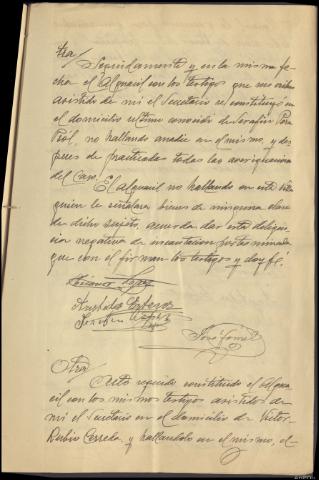 Otra/
Seguidamente y en la misma fe-
cha el Alguacil con los testigos que suscriben
asistido de mi el Secretario se constituyo en
el domicilio ultimo conocido de Serafin
no hallando a nadie en el mismo, y des-
pues de practicadas todas las averiguaciones
del Caso.
El alguacil no hallando en esta Villa
quien le señalara bienes de ninguna clase
de dicho sujeto, acuerda dar esta diligen-
cia negativa de incautacion por terminada
que con el firman los testigos y doy fé.
Lopez
Esteva
José
Otra/
Acto seguido constituido el Algua-
cil con los mismos testigos asistidos de
mi el Secretario en el domicilio de Victor
Rubio Cerreda y hallandolo en el mismo, el